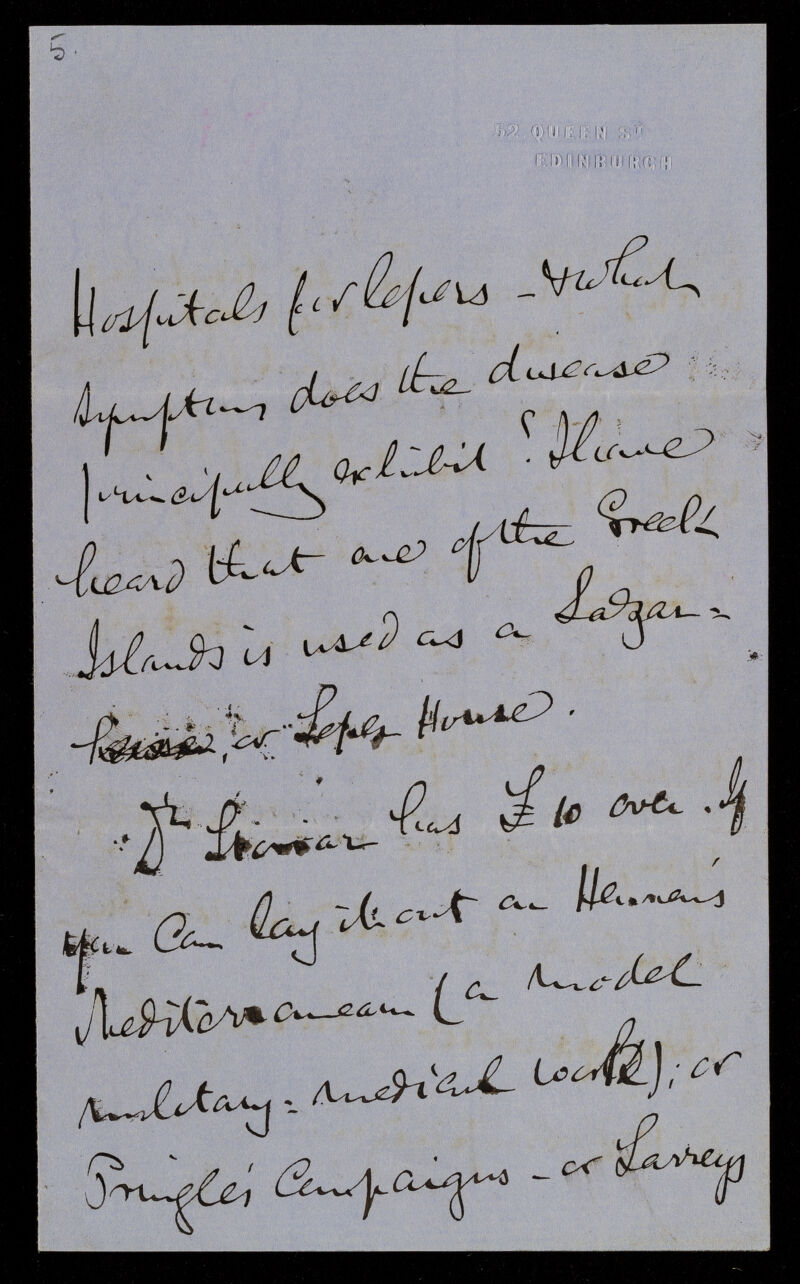 5.
52 QUEEN ST
EDINBURGH
Hospitals for lepers - & what
symptoms does the disease
principally exhibit? I have
heard that one of the Greek
Islands is used as a Lazar=
house, or Leper House.
Dr has £10 over. If
you can lay it out on Hennen's
Mediterranean (a model
military=medical work); or
Pringle's Campaigns - or Larreys